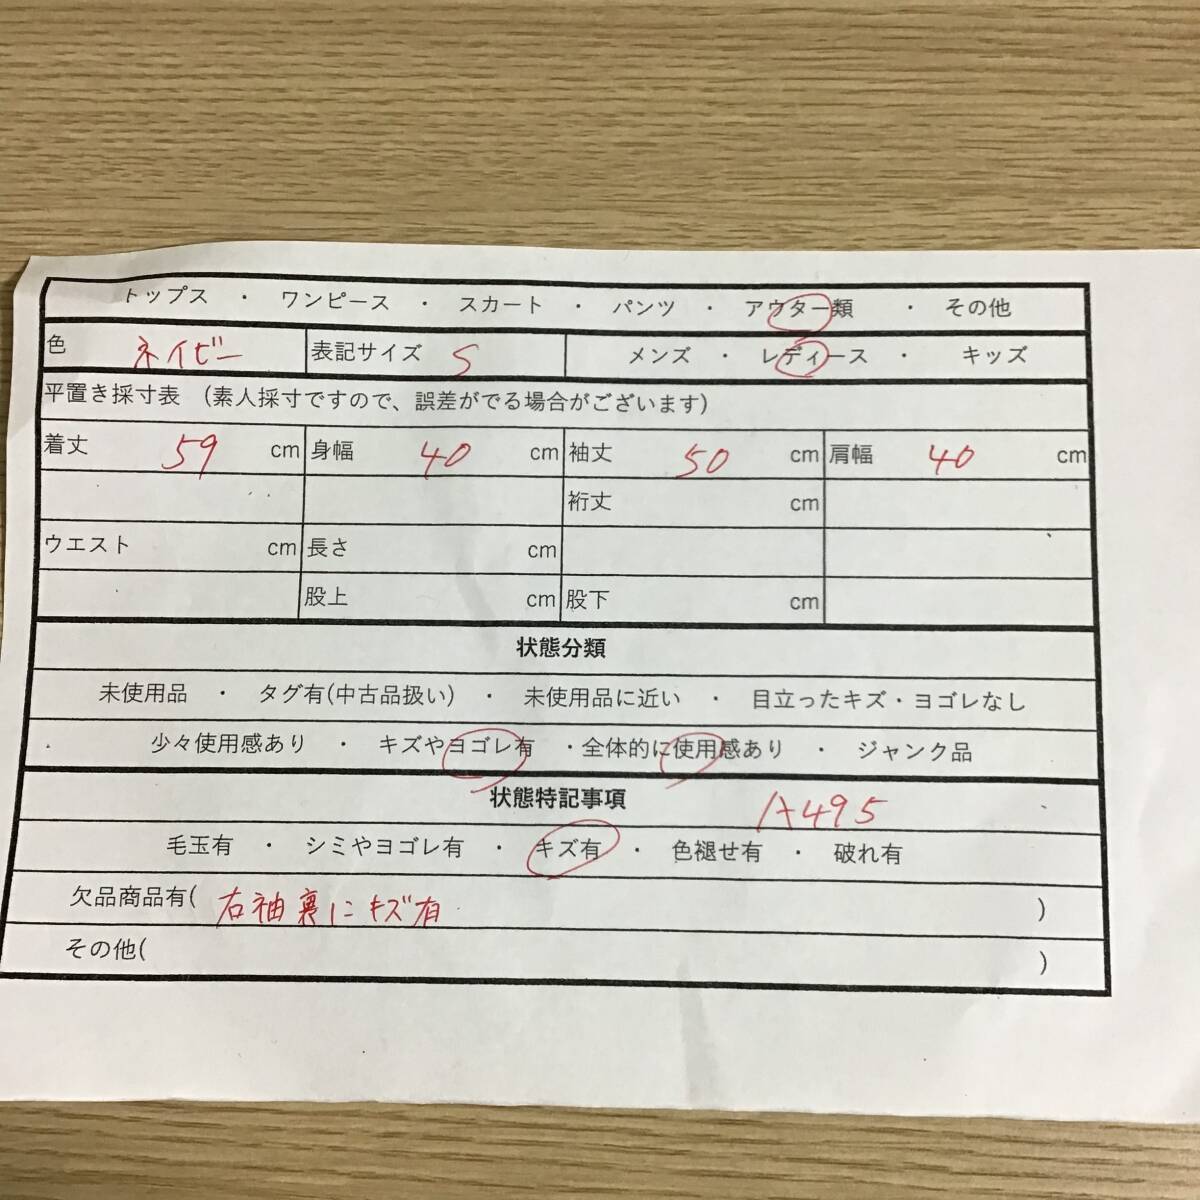 トップス ・ ワンピース ・ スカート ・ パンツ ・ アウター類 ・ その他
色 ネイビー 表記サイズ S メンズ ・ レディース ・ キッズ
平置き採寸表 (素人採寸ですので、誤差がでる場合がございます)
着丈 59 cm 身幅 40 cm 袖丈 50 cm 肩幅 40 cm
裄丈 cm
ウエスト cm 長さ cm
股上 cm 股下 cm
状態分類
未使用品 ・ タグ有(中古品扱い) ・ 未使用品に近い ・ 目立ったキズ・ヨゴレなし
少々使用感あり ・ キズやヨゴレ有 ・全体的に使用感あり ・ ジャンク品
状態特記事項 1A495
毛玉有 ・ シミやヨゴレ有 ・ キズ有 ・ 色褪せ有 ・ 破れ有
欠品商品有( 右袖裏にキズ有 )
その他( )